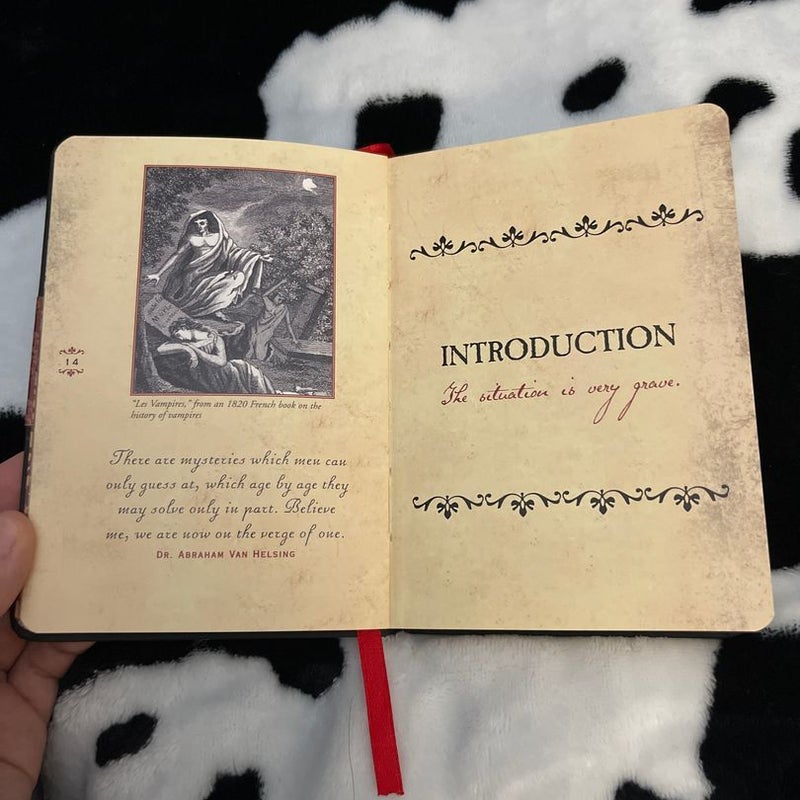 14
"Les Vampires," from an 1820 French book on the
history of vampires
There are mysteries which men can
only guess at, which age by age they
may solve only in part. Believe
me, we are now on the verge of one.
DR. ABRAHAM VAN HELSING
INTRODUCTION
The situation is very grave.